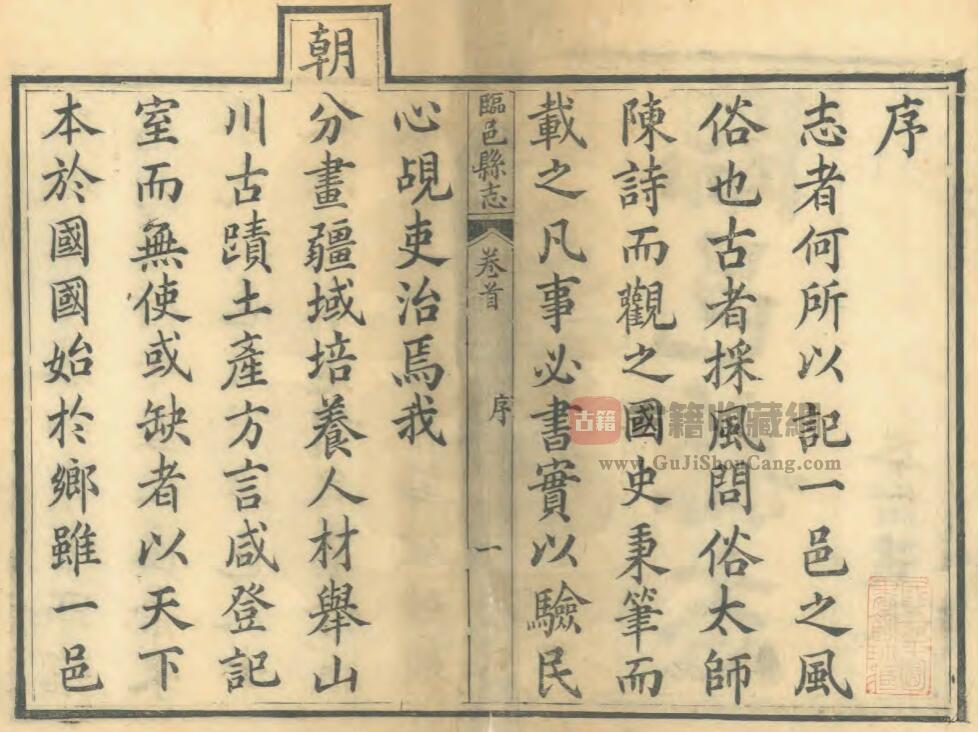 序
志者何所以記一邑之風
俗也古者採風問俗太師
陳詩而觀之國史秉筆而
載之凡事必書實以驗民
臨邑縣志
卷首
序
一
心覘吏治焉我
朝
分畫疆域培養人材舉山
川古蹟土產方言咸登記
室而無使或缺者以天下
本於國國始於鄉雖一邑
古籍
www.GuJiShouCang.com